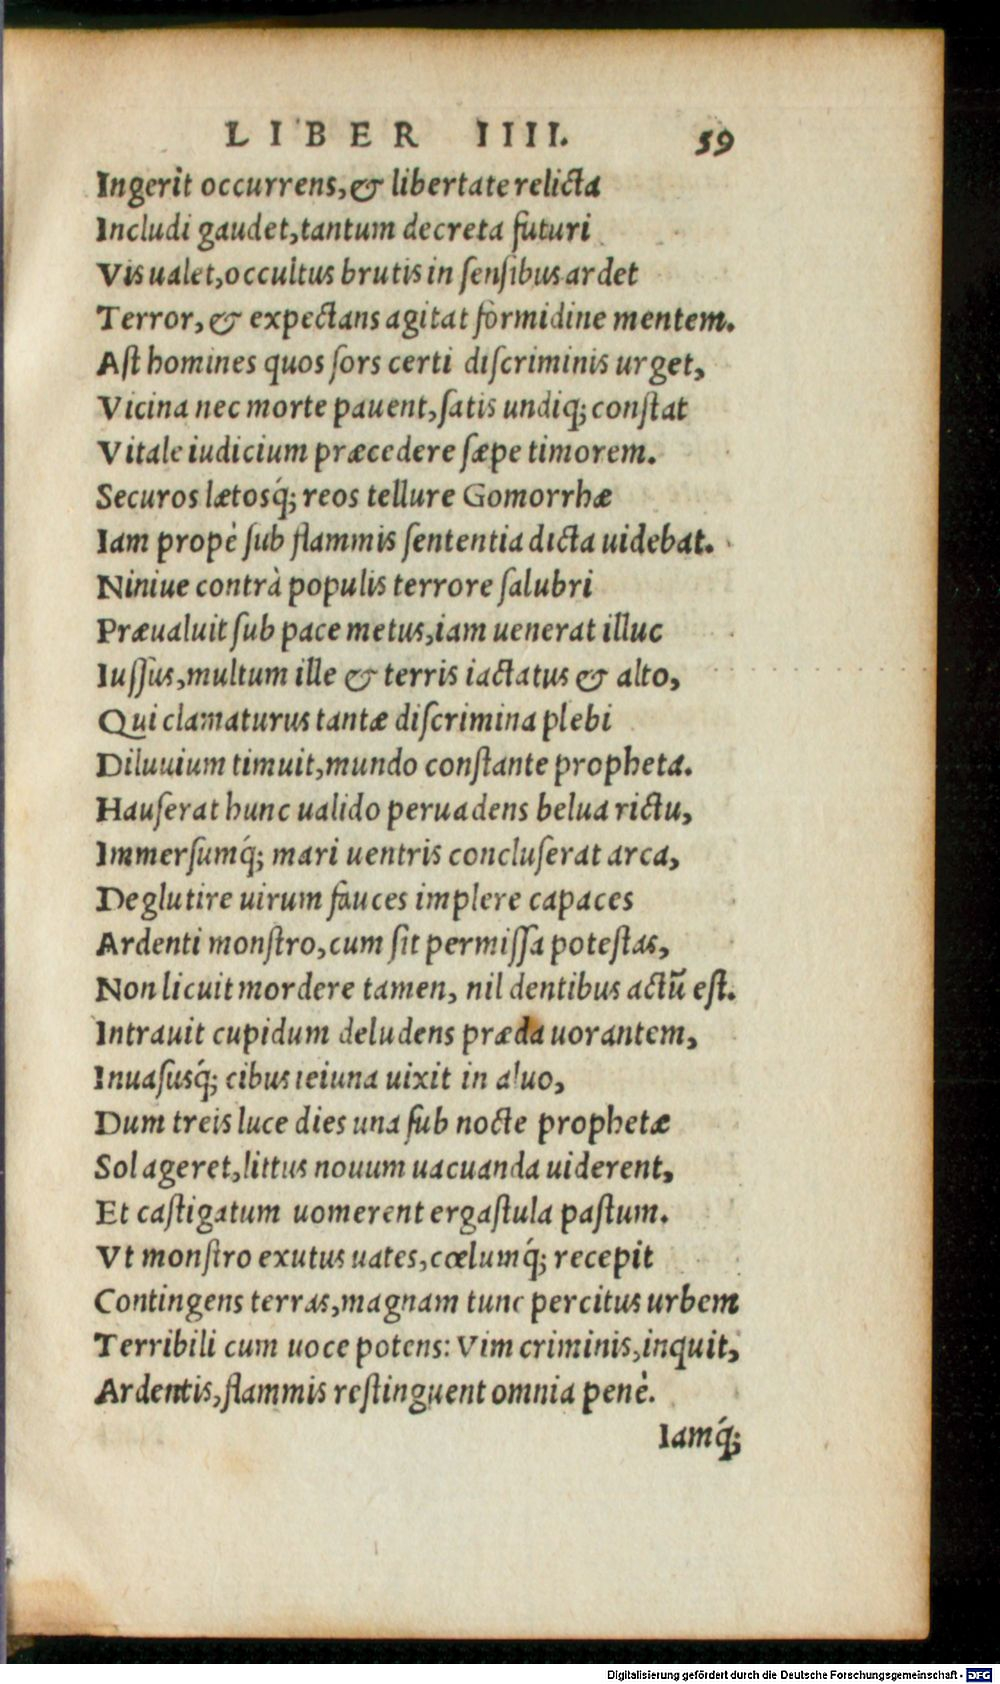 LIBER IIII. 59
Ingerit occurrens, & libertate relicta
Includi gaudet, tantum decreta futuri
Vis ualet, occultus brutis in sensibus ardet
Terror, & expectans agitat formidine mentem.
Ast homines quos sors certi discriminis urget,
Vicina nec morte pauent, satis undiq; constat
Vitale iudicium præcedere sæpe timorem.
Securos lætosq́; reos tellure Gomorrhæ
Iam propè sub flammis sententia dicta uidebat.
Niniue contrà populis terrore salubri
Præualuit sub pace metus, iam uenerat illuc
Iussus, multum ille & terris iactatus & alto,
Qui clamaturus tantæ discrimina plebi
Diluuium timuit, mundo constante propheta.
Hauserat hunc ualido peruadens belua rictu,
Immersumq́; mari uentris concluserat arca,
Deglutire uirum fauces implere capaces
Ardenti monstro, cum sit permissa potestas,
Non licuit mordere tamen, nil dentibus actū est.
Intrauit cupidum deludens præda uorantem,
Inuasusq́; cibus ieiuna uixit in aluo,
Dum treis luce dies una sub nocte prophetæ
Sol ageret, littus nouum uacuanda uiderent,
Et castigatum uomerent ergastula pastum.
Vt monstro exutus uates, cœlumq́; recepit
Contingens terras, magnam tunc percitus urbem
Terribili cum uoce potens: Vim criminis, inquit,
Ardentis, flammis restinguent omnia penè.
Iamq́;
Digitalisierung gefördert durch die Deutsche Forschungsgemeinschaft - DFG